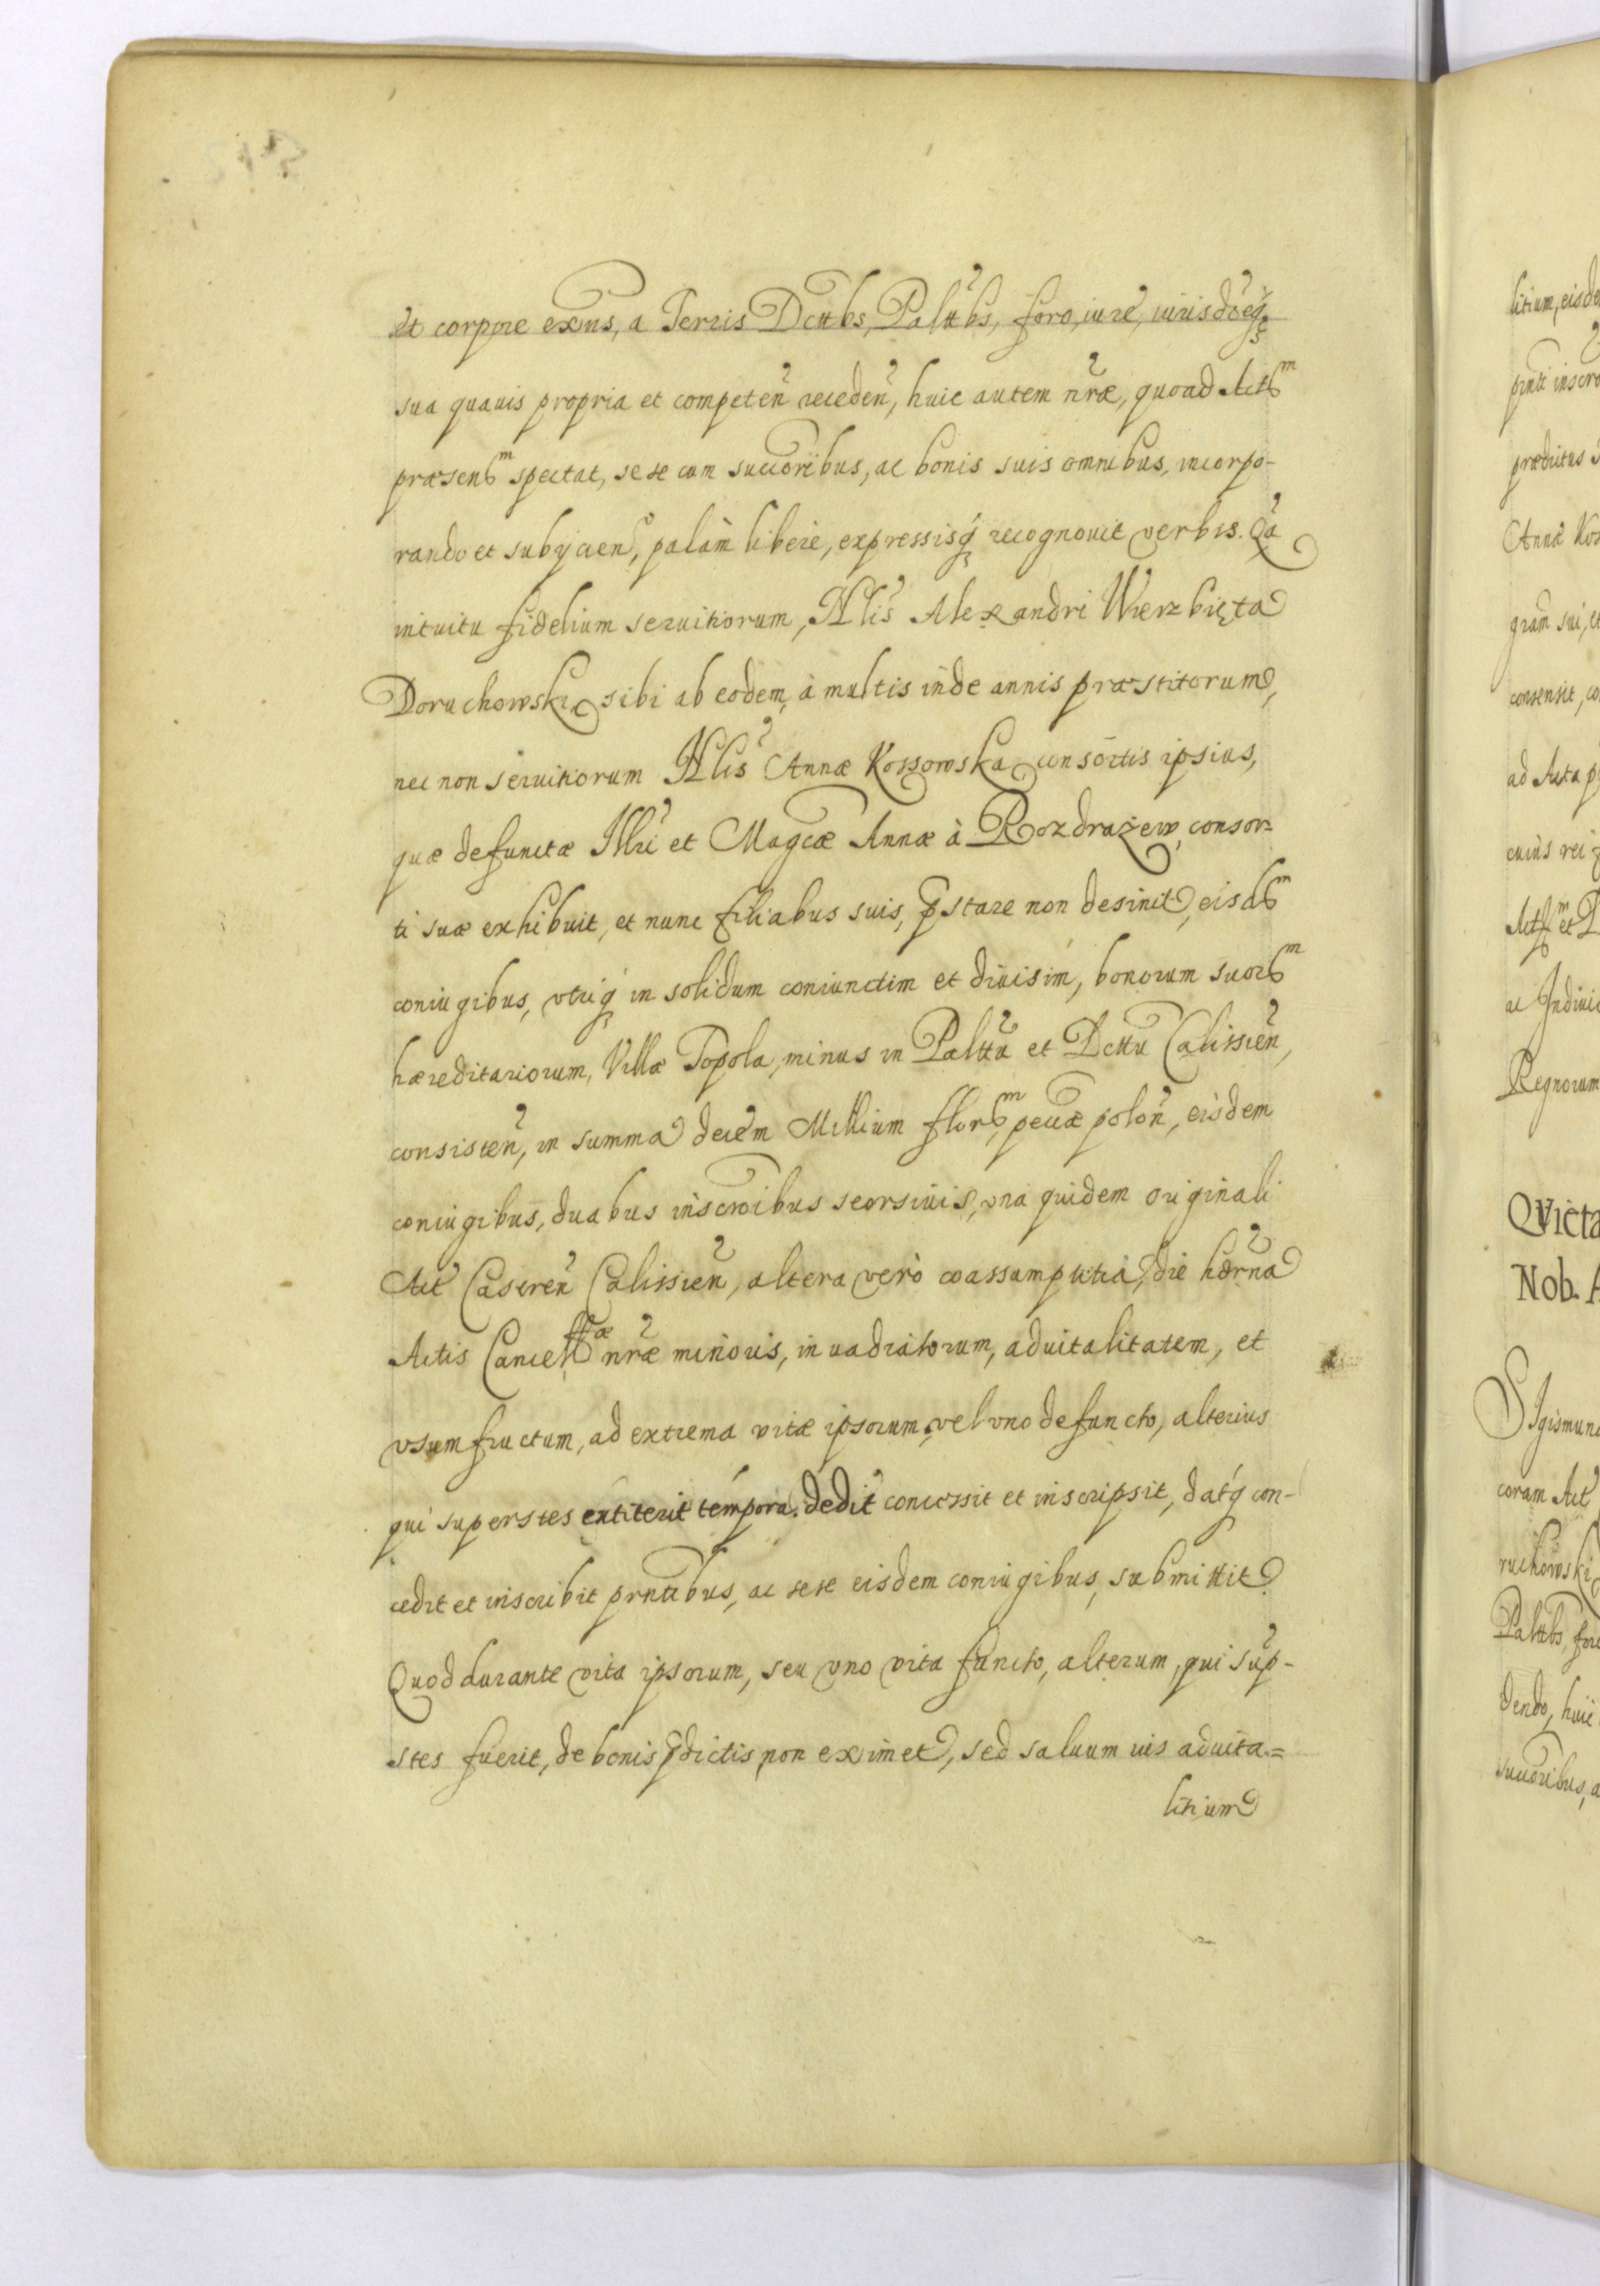 et corpore exñs, a Terris Dcttbs, Palttbs, foro, iure, iurisdõeq3
sua quauis propria et competeñ recedeñ, huic autem nr̃æ, quoad Act6ͫ
præsen6ͫ spectat, sese cum succoribus, ac bonis suis omnibus, incorpo-
rando et subycien, palàm libere, expressisq́ recognouit verbis. Qa
intuitu fidelium seruitiorum, Nlis Alexandri Wierzbięta
Doruchowski, sibi ab eodem, à multis inde annis præstitorum,
nec non seruitiorum Nlis Annæ Kossowska consortis ipsius,
quæ defunctæ Illri et Magcæ Annæ à Rozdrażew, consor-
ti suæ exhibuit, et nunc filiabus suis, p̃stare non desinit, eisd6ͫ
coniugibus, vtriq́ in solidum coniunctim et diuisim, bonorum suor6ͫ
hæreditariorum, Villæ Topola, minus in Palttũ et Dcttũ Calissieñ,
consisteñ, in summa decem Millium flor6ͫ, pecũæ poloñ, eisdem
coniugibus, duabus inscroibus seorsiuis, vna quidem originali
Act Castreñ Calissieñ, altera verò coassumptitià, die hõrna
Actis Cancellᵃᵉ nr̃æ minoris, inuadiatorum, aduitalitatem, et
vsumfructum, ad extrema vitæ ipsorum, vel vno defuncto, alterius
qui superstes extiterit tempora. dedit concessit et inscripsit, datq́ con-
cedit et inscribit prntibus, ac sese eisdem coniugibus, submittit
Quod durante vita ipsorum, seu vno vita functo, alterum, qui sup-
stes fuerit, de bonis p̃dictis non eximet, sed saluum ius aduita=
litium
litium, eisde
ad Acta p
cuius rei
Regnorum
Qvieta
Nob. A
Sigismun
coram Act
ruchowski
Palttbs, foro
dendo, huic
succoribus, a